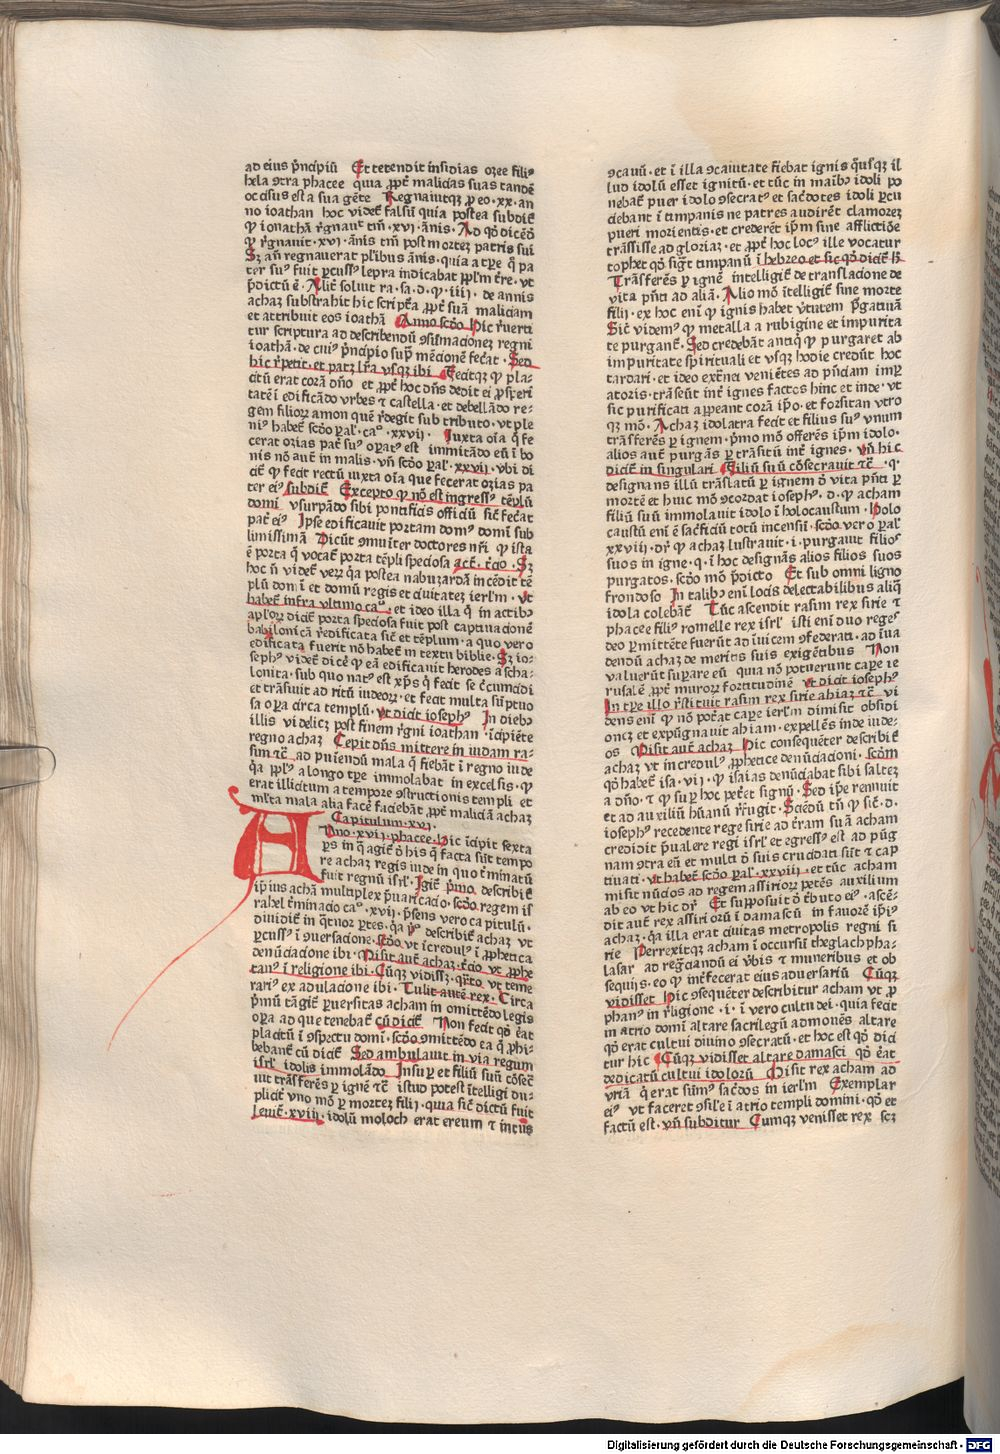 ad eius pͥncipiū Et tetendit insidias ozee filiꝰ
hela ꝯtra phacee quia ꝓpt̄ malicias suas tandē
occisus est a sua gēte Regnauitqꝫ ꝓ eo ·xx· an
no ioathan hoc videt̄ falsū quia postea subdit̄
ꝙ ionathan r̄gnauit tm̄ ·xvj· ānis· Ad qd̄ dicēdū
ꝙ r̄gnauit ·xvj· ānis tm̄ post mortez patris sui
Sꝫ an̄ regnauerat plībus ānis· quia a tꝑe q̄ pa
ter suꝰ fuit ꝑcussꝰ lepra iudicabat ppl̄m t̄re· vt
p̄dictū ē· Alit̄ soluit ra· sa· d· ꝙ ·iiij· de annis
achaz substrahit hic scriptͣa ꝓpt̄ suā maliciam
et attribuit eos ioathā Anno scd̄o Hic r̄uerti
tur scriptura ad describendū ꝯsum̄acionez regni
ioathā· de cuiꝰ pͥncipio supͣ mēcionē fec̄at· Sed
hic r̄petit· et patꝫ lr̄a vsqꝫ ibi Fecitqꝫ ꝙ pla⸗
citū erat corā dn̄o et ꝓpt̄ hoc dn̄s dedit ei ꝓsꝑi
tatē ī edificādo vrbes ⁊ castella· et debellādo re⸗
gem filioꝝ amon quē r̄degit sub tributo· vt ple
niꝰ habet̄ scd̄o pal̄· caᵒ ·xxvij· Iuxta oīa q̄ fe
cerat ozias pat̄ suꝰ opatꝰ est immitādo eū ī bo
nis nō aut̄ in malis· vn̄ scd̄o pal̄ ·xxvij· vbi di
cit̄ ꝙ fecit rectū iuxta oīa que fecerat ozias pa
ter eiꝰ subdit̄ Excepto ꝙ nō est ingressꝰ tēplū
domī vsurpādo sibi pontificis officiū sic̄ fec̄at
pat̄ eiꝰ Ipse edificauit portam domꝰ domī sub
limissimā Dicūt ꝯmuīter doctores nr̄i ꝙ ista
ē porta q̄ vocat̄ porta tēpli speciosa act̄· t̄cio · Sꝫ
hoc n̄ videt̄ veꝝ qͣa postea nabuzardā incēdit tē
plū domī et domū regis et ciuitatez ierlm̄· vt
habet̄ infra vltimo caᵒ· et ideo illa q̄ in actibꝰ
apl̄oꝝ dicit̄ porta speciosa fuit post captiuacionē
babilonicā r̄edificata sic̄ et tēplum· a quo vero
edificata fuerit nō habet̄ in textu biblie· Sꝫ io⸗
sephꝰ videt̄ dicē ꝙ eā edificauit herodes ascha⸗
lonita· sub quo natꝰ est xp̄s q̄ fecit se c̄cūcidi
et trāsiuit ad ritū iudeoꝝ· et fecit multa sūptuo
sa opa circa templū· vt dicit iosephꝰ In diebꝰ
illis videlicꝫ post finem r̄gni ioathan· īcipiēte
regno achaz Cepit dn̄s mittere in iudam ra⸗
sim ⁊c̄· ad puīendū mala q̄ fiebāt ī regno iude
qͣa ppl̄s a longo tꝑe immolabat in excelsis· ꝙ
erat illicitum a tempore ꝯstructionis templi et
ml̄ta mala alia facē faciebāt ꝓpt̄ maliciā achaz
Capitulum·xvj·
Anno·xvij·phacee· Hic īcipit sexta
ꝑs in q̄ agit̄ d̄ his q̄ facta sūt tempo
re achaz regis iude in quo t̄minatū
fuit regnū isrl̄· Igit̄ pͥmo describit̄
ip̄ius achā multiplex p̄uaricacio· scd̄o regem is
rahel t̄minacio caᵒ ·xvij· p̄sens vero capitulū·
diuidit̄ in qͣtuor ꝑtes· qͣ pͥᵒ describit̄ achaz vt
ꝑcussꝰ ī ꝯuersacione· scd̄o vt īcredulꝰ ī ꝓphetica
denūciacione ibi· Misit aut̄ achaz· t̄cio vt ꝓphe
tanꝰ ī religione ibi· Cūqꝫ vidissꝫ· qͣrto· vt teme
rariꝰ ex adulacione ibi· Tulit autē rex· Circa
pͥmū tāgit̄ ꝑuersitas acham in omittēdo legis
opa ad que tenebat̄ cū dicit̄ Non fecit qd̄ ēat
placitū ī ꝯspectu domī· scd̄o ꝯmittēdo ea q̄ ꝓhi⸗
bebant̄ cū dicit̄ Sed ambulauit in via regum
isrl̄ idolis immolādo Insuꝑ et filiū suū cōsec̄
uit trāsferēs ꝑ ignē ⁊c̄ istud potest ītelligi du⸗
plicit̄ vno mō ꝑ mortez filij· quia sic̄ dictū fuit
leuit̄·xviij· idolū moloch erat ereum ⁊ intus
ꝯcauū· et ī illa ꝯcauitate fiebat ignis q̄usqꝫ il
lud idolū esset ignitū· et tūc in manibꝰ idoli po
nebat̄ puer idolo ꝯsecratꝰ et sacdotes idoli ꝑcu
ciebant ī timpanis ne patres audirēt clamorez
pueri morientis· et crederēt ip̄m sine afflictiōe
trāsisse ad gloriaꝫ· et ꝓpt̄ hoc locꝰ ille vocatur
tophet qd̄ sigͭ timpanū ī hebreo et sic qd̄ dicit̄ h̄
Trāsferēs ꝑ ignē intelligit̄ de translacione de
vita pn̄ti ad aliā· Alio mō ītelligit̄ sine morte
filij· ex hoc enī ꝙ ignis habet v̄tutem p̄gatiuā
Sic̄ videmꝰ ꝙ metalla a rubigine et impurita
te purgant̄· Sed credebāt antiqͥ ꝙ purgaret ab
impuritate spirituali et vsqꝫ hodie credūt hoc
tardari· et ideo extͣnei veniētes ad pn̄ciam impͣ
atoris· trāseūt int̄ ignes factos hinc et inde· vt
sic purificati appeant corā ip̄o· et forsitan vtro
qꝫ mō· Achaz idolatra fecit et filius suꝰ vnum
trāsferēs ꝑ ignem· pͥmo mō offerēs ip̄m idolo·
alios aut̄ purgās ꝑ trāsitū int̄ ignes· vn̄ hic
dicit̄ in singulari Filiū suū cōsecrauit ⁊c̄ ·q·
designans illū trāslatū ꝑ ignem d̄ vita pn̄ti ꝑ
mortē et huic mō ꝯcordat iosephꝰ· d· ꝙ acham
filiū suū immolauit idolo ī holocaustum· Holo
caustū enī ē sacficiū totū incensū· scd̄o vero pal̄
xxviij· dr̄ ꝙ achaz lustrauit ·i· purgauit filios
suos in igne· q· ī hoc designās alios filios suos
purgatos· scd̄o mō p̄dicto Et sub omni ligno
frondoso In talibꝰ enī locis delectabilibus aliq̄
idola colebāt̄ Tūc ascendit rasim rex sirie ⁊
phacee filiꝰ romelie rex isrl̄ isti enī duo reges
deo ꝑmittēte fuerūt ad īuicem ꝯfederati· ad īua
dendū achaz de meritis suis exigētibus Non
valuerūt supare eū quia nō potuerunt cape ie
rusalē ꝓpt̄ muroꝝ fortitudinē vt dicit iosephꝰ
In tꝑe illo r̄stituit rasim rex sirie ahiaz ⁊c̄ vi
dens enī ꝙ nō pot̄at cape ierlm̄ dimisit obsidi
onez et expugnauit ahiam· expellēs inde iude⸗
os Misit aut̄ achaz Hic consequēter describit̄
achaz vt incredulꝰ ꝓphetice denūciacioni· scd̄m
qd̄ habet̄ isa· vij· ꝙ isaias denūciabat sibi saltez
a dn̄o· ⁊ ꝙ suꝑ hoc pet̄et signū· Sed ip̄e rennuit
et ad auxiliū hūanū r̄fugit· Sciēdū tn̄ ꝙ sic̄·d·
iosephꝰ recedente rege sirie ad t̄ram suā acham
credidit p̄ualere regi isrl̄ et egressꝰ est ad pug
nam ꝯtra eū et multi d̄ suis cruciati sūt ⁊ cap
tiuati· vt habet̄ scd̄o pal̄ ·xxviij· et tūc acham
misit nūcios ad regem assirioꝝ petēs auxilium
ab eo vt hic dr̄ Et supposuit d̄ t̄buto eiꝰ· ascē⸗
dit aut̄ rex assiriorū ī damascū in fauorē ip̄iꝰ
achaz· qͣa illa erat ciuitas metropolis regni si
rie Perrexitqꝫ acham ī occursū theglachpha⸗
lasar ad reg̃ciandū ei v̄bis ⁊ muneribus et ob
sequijs· eo ꝙ int̄fecerat eius aduersariū Cūqꝫ
vidisset Hic ꝯsequēter describitur acham vt ꝓ
phanꝰ in r̄ligione ·i· ī vero cultu dei· quia fecit
in atrio domī altare sacrilegū admouēs altare
qd̄ erat cultui diuino ꝯsecratū· et hoc est qd̄ dici
tur hic Cūqꝫ vidisset altare damasci qd̄ ēat
dedicatū cultui idolorū Misit rex acham ad
vriā q̄ erat sūmꝰ sacdos in ierlm̄ Exemplar
eiꝰ vt faceret ꝯsile ī atrio templi domini· qd̄ et
factū est· vn̄ subditur Cumqꝫ venisset rex scꝫ
Digitalisierung gefördert durch die Deutsche Forschungsgemeinschaft - DFG